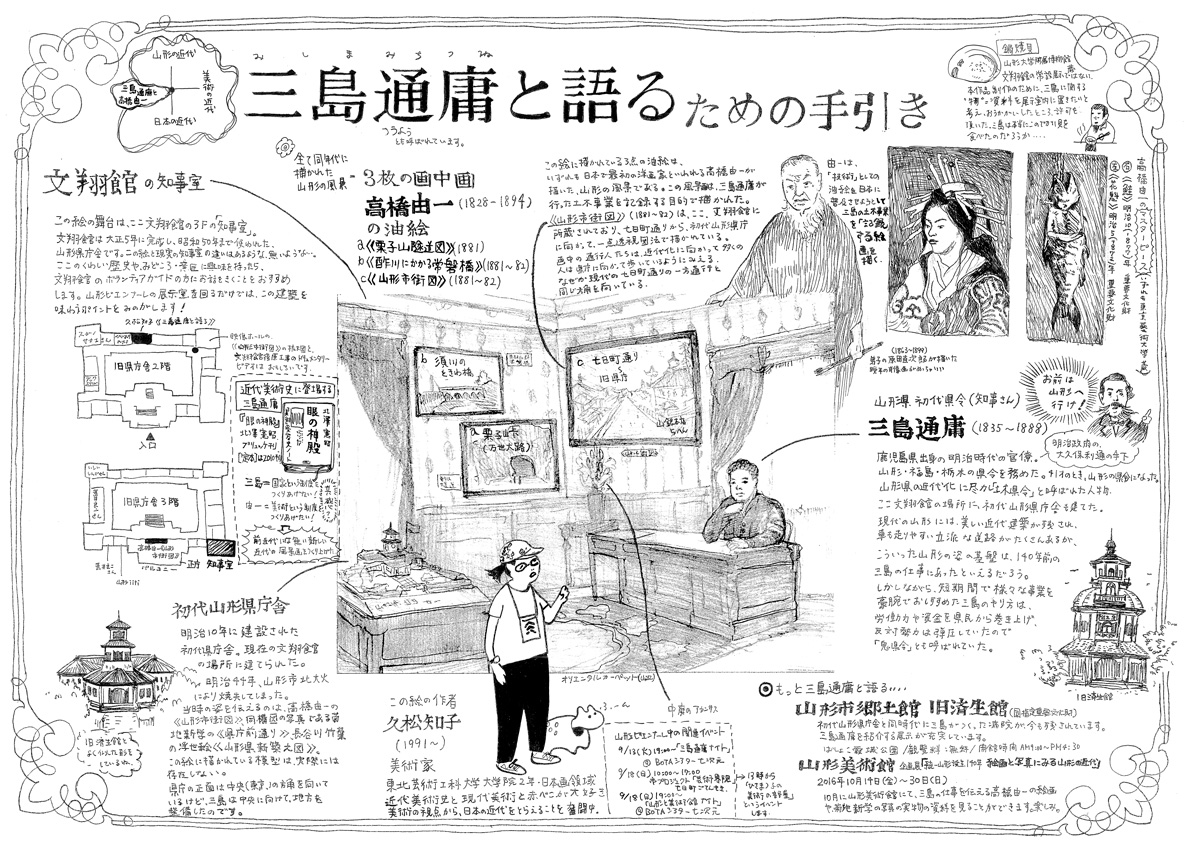 みしまみちつね
三島通庸と語るための手引き
つうよう
とも呼ばれています。
山形の近代
美術の近代
日本の近代
三島通庸と
高橋由一
文翔館の知事室
この絵の舞台は、ここ文翔館の3Fの「知事室」。
文翔館は大正5年に完成し、昭和50年まで使われた、
山形県庁舎です。この絵と現実の知事室の違いはあるような、無いような…。
ここのくわしい歴史や、みどころ・学区に興味を持ったら、
文翔館のボランティアガイドの方にお話をきくことをおすすめ
します。山形ビエンナーレの展示室を回るだけでは、この建築を
味わうポイントをみのがします!
旧県庁舎2階
入口
旧県庁舎3階
バルコニー
知事室
近代美術史に登場する
三島通庸
『眼の神殿』
北澤憲昭
眼の神殿
全て同年代に
描かれた
山形の風景
3枚の画中画
高橋由一(1828-1894)
の油絵
a《栗子山隧道図》(1881)
b《酢川にかかる常磐橋》(1881~82)
c《山形市街図》(1881~82)
この絵に描かれている3点の油絵は、
いずれも日本で最初の洋画家といわれる高橋由一が
描いた、山形の風景である。この風景画は、三島通庸が
行った土木事業を記録する目的で描かれた。
《山形市街図》(1881~82)は、ここ、文翔館に
所蔵されており、七日町通りから、初代山形県庁
に向かって、一点透視図法で描かれている。
画中の通行人たちは、近代化に向かって、多くの
人は県庁に向かって歩いているようにみえる。
なぜか現代の七日町通りの一方通行と
同じ方角を向いている。
由一は、
「技術」としての
油絵を日本に
普及させようとして
三島の土木事業
を「記録
する絵
画」を
描く。
山形大学附属博物館
高橋由一のマスターピース(いずれも東京藝術大学蔵)
《鮭》明治10(1877)年 重要文化財
《花魁》明治5(1872)年 重要文化財
b 須川の
ときわ橋
c 七日町通り
旧県庁
a 栗子山下
(万世大路)
お前は
山形へ
行け!
明治政府の、
大久保利通の手下
山形県 初代県令(知事さん)
三島通庸(1835~1888)
鹿児島県出身の明治時代の官僚。
山形・福島・栃木の県令を務めた。41才のとき、山形の県令になった。
山形県の近代化に尽力し「土木県令」と呼ばれた人物。
ここ文翔館の場所に、初代山形県庁舎を建てた。
現代の山形には、美しい近代建築が残され、
車も走りやすい立派な道路がたくさんあるが、
こういった山形の姿の基盤は、140年前の
三島の仕事にあったといえるだろう。
しかしながら、短期間で様々な事業を
豪腕でおしすすめた三島のやり方は、
労働力や資金を県民から巻き上げ、
反対勢力は弾圧していたので
「鬼県令」とも呼ばれていた。
旧済生館
初代山形県庁舎
明治10年に建設された
初代県庁舎。現在の文翔館
の場所に建てられた。
明治44年、山形市北大火
により焼失してしまった。
当時の姿を伝えるのは、高橋由一の
《山形市街図》、同構図の写真である菊
地新学の《県庁前通り》、長谷川竹葉
の浮世絵《山形県新築之図》。
この絵に描かれている模型は、実際には
存在しない。
県庁の正面は中央(東京)の方角を向いて
いるけど、三島は中央に向けて、地方を
整備したのです。
旧済生館と
よく似た形を
しているね。
オリエンタルカーペット
この絵の作者
久松知子
(1991~)
美術家
東北芸術工科大学大学院2年・日本画領域
近代美術史と現代美術と赤べこが大好き
美術の視点から、日本の近代をとらえることに奮闘中。
山形ビエンナーレ中の関連イベント
9/13(火)19:00~「三島通庸ナイト」
@BOTAシアター七次元
9/18(日)10:00~19:00
9/18(日)19:00~
「山形と美術館ナイト」
@BOTAシアター七次元
13時から
というイベント
します。
もっと三島通庸と語る....
山形市郷土館 旧済生館(国指定重要文化財)
初代山形県庁舎と同時代に三島がつくった済生館が今も残されています。
三島通庸を紹介する展示が充実しています。
ばしょ:霞城公園/観覧料:無料/開館時間 AM9:00~PM4:30
山形美術館
2016年10月19日(金)~30日(日)
10月に山形美術館にて、三島の仕事を伝える高橋由一の絵画
や、菊地新学の写真の実物の資料を見ることができます。楽しみ。